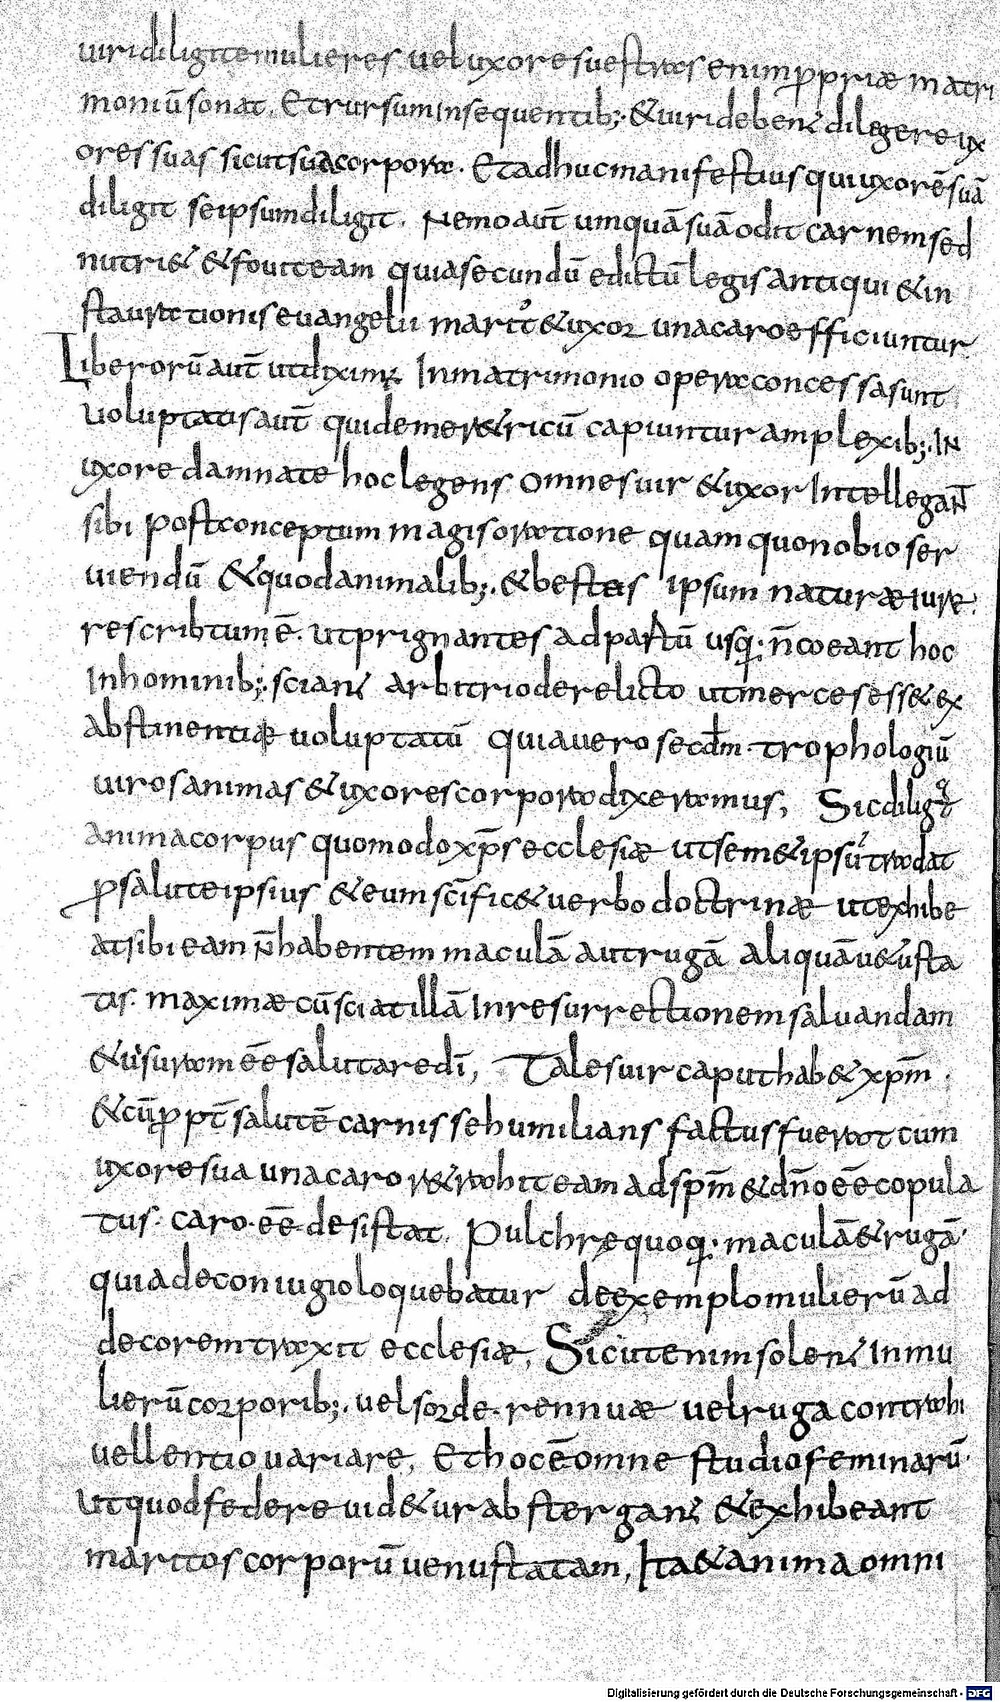 uiri diligite mulieres uel uxores uestras enim ꝓpriæ matri
moniū sonat. Et rursum in sequentib; & uiri debent diligere ux
ores suas sicut sua corpora. Et adhuc manifestius qui uxorē suā
diligit se ipsum diligit. Nemo aut̄ umquā suā odit carnem sed
nutri& & fouit eam quia secundū edictū legis antiqui & in
staurationis euangelii marit᾽ & uxor una caro efficiuntur
Liberorū aut̄ ut diximꝰ In matrimonio opera concessa sunt
uoluptatis aut̄ quidem er&ricū capiuntur amplexib; In
uxore damnate hoc legens omnes uir & uxor Intellegant̄
sibi post conceptum magis oratione quam quonobio ser
uiendū & quod animalib; & besteis ipsum naturæ iure
rescribtum ē. ut prignantes ad partū usq; n̄ coeant hoc
In hominib; sciant arbitrio derelicto ut merces ess& ex
abstinentiæ uoluptatū quia uero secdm̄ trophologiū
uiros animas & uxores corpora dixeramus, Sic diligit̄
anima corpus quomodo xp̄s ecclesiæ ut sem&ipsū tradat
ꝓ salute ipsius & eum sc̄ific& uerbo doctrinæ ut exhibe
at sibi eam n̄ habentem maculā aut rugā aliquā u&usta
tis. maximæ cū sciat illā In resurrectionem saluandam
& uisuram ēe salutare dī, Tales uir caput hab& xp̄m
& cū ꝓpt̄ salutē carnis se humilians factus fuerat cum
uxore sua una caro r&rahit eam ad sp̄m & dn̄o ēe copula
tus. caro ēe desistat. Pulchre quoq; maculā & rugā
quia de coniugio loquebatur de exemplo mulierū ad
decorem traxit ecclesiæ, Sicut enim solent In mu
lierū corporib; uel sorde rennuæ uel ruga contrahi
uel lentio uariare, Et hoc ē omne studio feminarū
ut quod federe uid&ur abstergant & exhibeant
maritos corporū uenustatam, Ita & anima omni
Digitalisierung gefördert durch die Deutsche Forschungsgemeinschaft - DFG